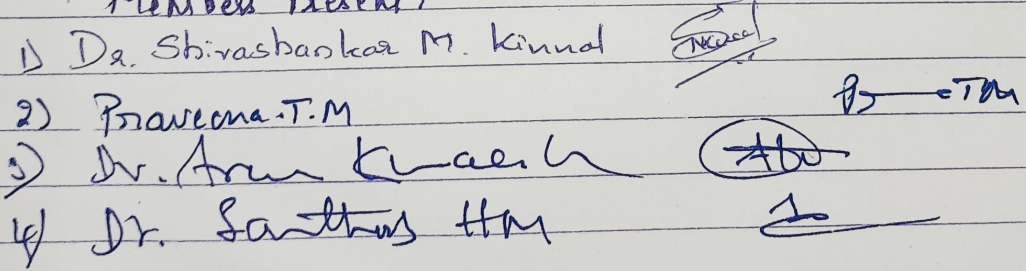 Members Present,
1) Dr. Shivashankar M. Kinnal
2) Praveena.T.M
3) Dr. Arun
4) Dr. Santhos HM